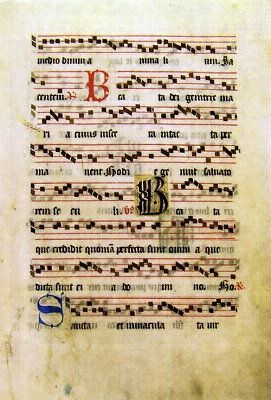 medio duum a nima li um. Ja
centem. B ea ta dei genitrix ma
ri a cuius visce ra intac ta per
ma nent Hodi e ge nuit saluato
rem se cu li. B ea ta
que credidit quoniā perfecta sunt omnia que
dicta sunt ei a do mi no. Ho.
S ancta et inmacula ta vir